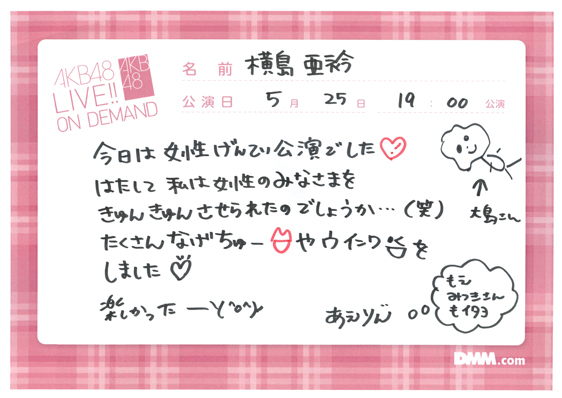 AKB48
LIVE!!
ON DEMAND
AKB
48
名 前 横島 亜衿
公演日 5月 25日 19:00 公演
今日は 女性げんてい公演でした♡
はたして 私は女性のみなさまを
きゅんきゅんさせられたのでしょうか…(笑)
たくさんなげちゅーやウインクを
しました♡
楽しかったー\(^o^)/
あえりん
大島さん
もえ
みつきさん
もイタヨ
DMM.com